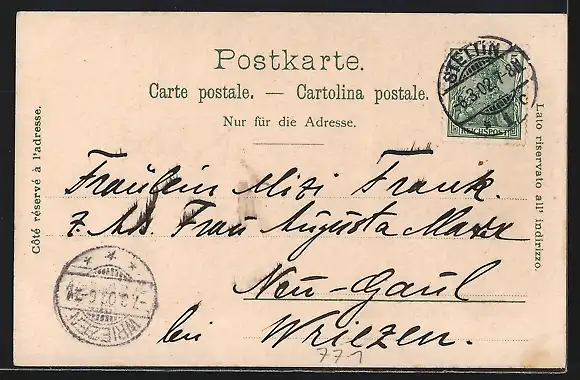 Postkarte.
Carte postale. — Cartolina postale.
Nur für die Adresse.
Côté réservé à l'adresse.
Lato riservato all' indirizzo.
STETTIN
8.3.02.7-8N
c
REICHSPOST
Fräulein Mizi Frank.
z. Ads Frau Augusta
Neu-Gaul
bei Wriezen.
WRIEZEN
771